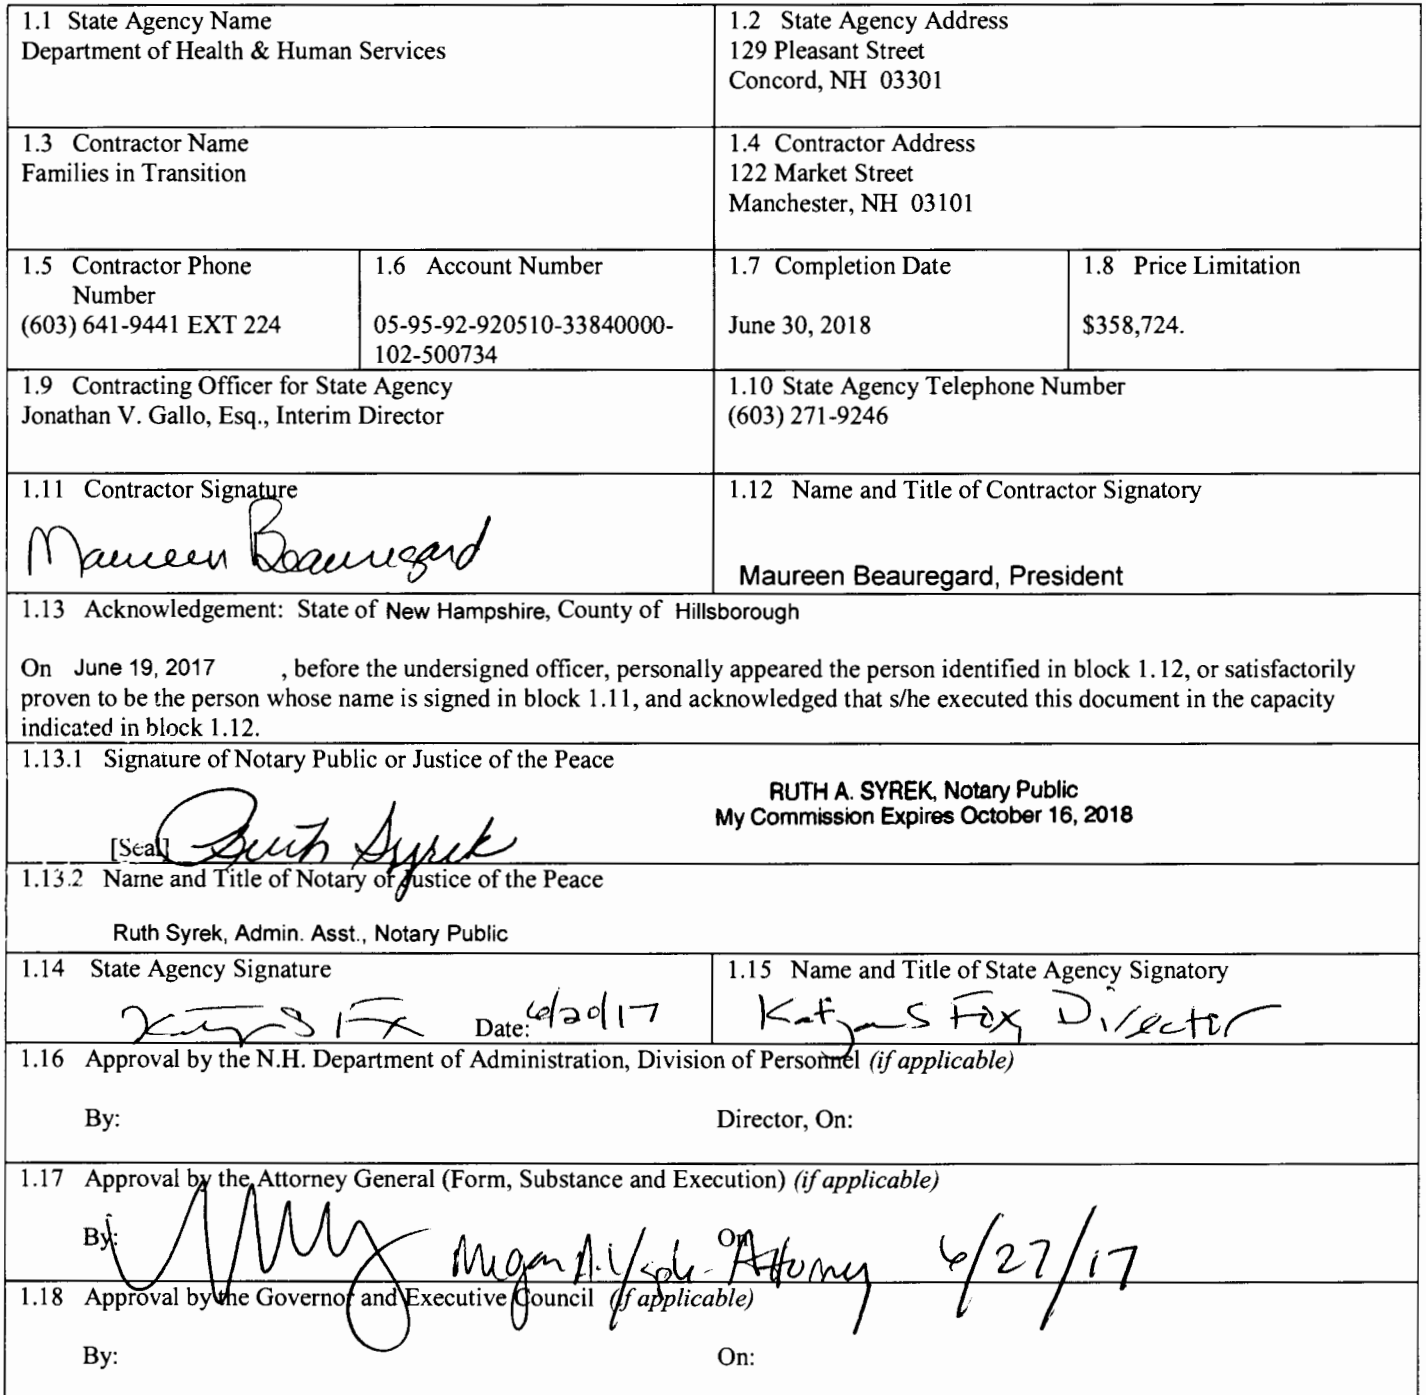 1.1 State Agency Name
Department of Health & Human Services
1.2 State Agency Address
129 Pleasant Street
Concord, NH 03301
1.3 Contractor Name
Families in Transition
1.4 Contractor Address
122 Market Street
Manchester, NH 03101
1.5 Contractor Phone
Number
(603) 641-9441 EXT 224
1.6 Account Number
05-95-92-920510-33840000-
102-500734
1.7 Completion Date
June 30, 2018
1.8 Price Limitation
$358,724.
1.9 Contracting Officer for State Agency
Jonathan V. Gallo, Esq., Interim Director
1.10 State Agency Telephone Number
(603) 271-9246
1.11 Contractor Signature
Maureen Beauregard
1.12 Name and Title of Contractor Signatory
Maureen Beauregard, President
1.13 Acknowledgement: State of New Hampshire, County of Hillsborough
On June 19, 2017 , before the undersigned officer, personally appeared the person identified in block 1.12, or satisfactorily
proven to be the person whose name is signed in block 1.11, and acknowledged that s/he executed this document in the capacity
indicated in block 1.12.
1.13.1 Signature of Notary Public or Justice of the Peace
RUTH A. SYREK, Notary Public
My Commission Expires October 16, 2018
[Seal] Ruth Syrek
1.13.2 Name and Title of Notary or Justice of the Peace
Ruth Syrek, Admin. Asst., Notary Public
1.14 State Agency Signature
Date: 6/20/17
1.15 Name and Title of State Agency Signatory
S Fox, Director
1.16 Approval by the N.H. Department of Administration, Division of Personnel (if applicable)
By:
Director, On:
1.17 Approval by the Attorney General (Form, Substance and Execution) (if applicable)
By: Megan A. - Attorney On: 6/27/17
1.18 Approval by the Governor and Executive Council (if applicable)
By:
On: